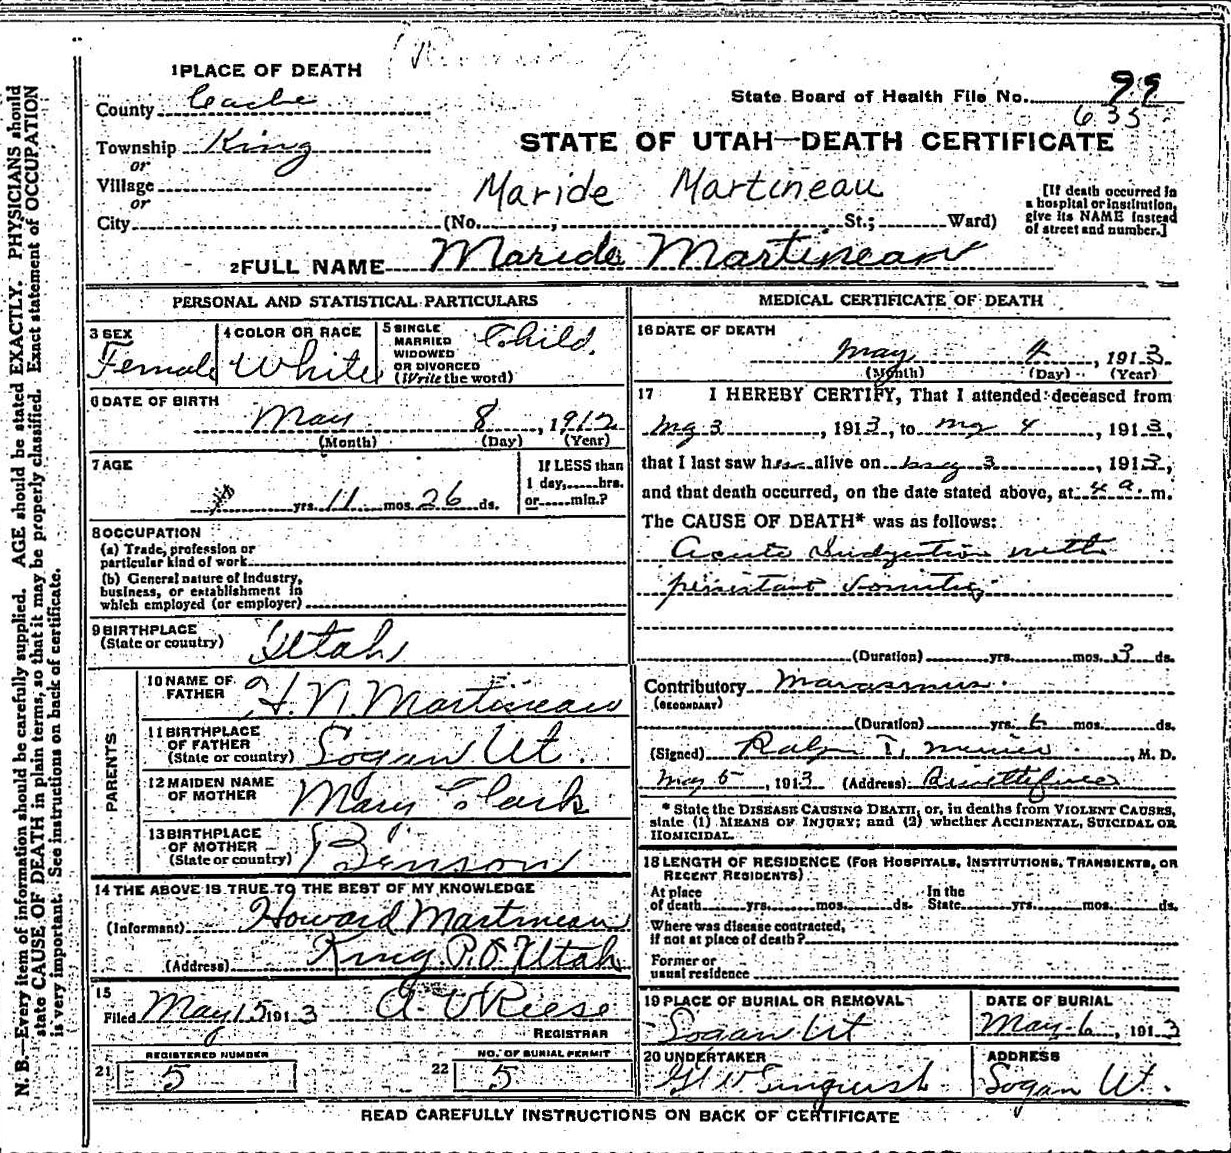 1 PLACE OF DEATH
County Cache
State Board of Health File No. 99
635
Township King
STATE OF UTAH—DEATH CERTIFICATE
or
Village
Maride Martineau
[If death occurred in a hospital or institution, give its NAME instead of street and number.]
or
City (No. , St.; Ward)
2 FULL NAME Maride Martineau
PERSONAL AND STATISTICAL PARTICULARS
3 SEX
Female
4 COLOR OR RACE
White
5 SINGLE
MARRIED
WIDOWED
OR DIVORCED
(Write the word)
Child.
6 DATE OF BIRTH
May 8, 1912
(Month) (Day) (Year)
7 AGE
yrs. 11 mos. 26 ds.
If LESS than
1 day, hrs.
or min.?
8 OCCUPATION
(a) Trade, profession or
particular kind of work
(b) General nature of Industry,
business, or establishment in
which employed (or employer)
9 BIRTHPLACE
(State or country) Utah
PARENTS
10 NAME OF
FATHER H. N. Martineau
11 BIRTHPLACE
OF FATHER
(State or country) Logan Ut.
12 MAIDEN NAME
OF MOTHER Mary Clark
13 BIRTHPLACE
OF MOTHER
(State or country) Benson
14 THE ABOVE IS TRUE TO THE BEST OF MY KNOWLEDGE
(Informant) Howard Martineau
(Address) King P.O. Utah
15
Filed May 15 1913 A. V. Reese
REGISTRAR
21 REGISTERED NUMBER
5
22 NO. OF BURIAL PERMIT
5
MEDICAL CERTIFICATE OF DEATH
16 DATE OF DEATH
May 4, 1913
(Month) (Day) (Year)
17 I HEREBY CERTIFY, That I attended deceased from
My 3, 1913, to my 4, 1913,
that I last saw her alive on may 3, 1913,
and that death occurred, on the date stated above, at 4 a. m.
The CAUSE OF DEATH* was as follows:
Acute Indigestion with
persistant vomiting
(Duration) yrs. mos. 3 ds.
Contributory Marasmus.
(SECONDARY)
(Duration) yrs. 6 mos. ds.
(Signed) Ralph T. , M. D.
May 5, 1913 (Address)
* State the DISEASE CAUSING DEATH, or, in deaths from VIOLENT CAUSES,
state (1) MEANS OF INJURY; and (2) whether ACCIDENTAL, SUICIDAL OR
HOMICIDAL.
18 LENGTH OF RESIDENCE (FOR HOSPITALS, INSTITUTIONS, TRANSIENTS, OR
RECENT RESIDENTS)
At place In the
of death yrs. mos. ds. State yrs. mos. ds.
Where was disease contracted,
if not at place of death?
Former or
usual residence
19 PLACE OF BURIAL OR REMOVAL
Logan Ut
DATE OF BURIAL
May 6, 1913
20 UNDERTAKER
ADDRESS
Logan Ut.
READ CAREFULLY INSTRUCTIONS ON BACK OF CERTIFICATE
N. B.—Every item of information should be carefully supplied. AGE should be stated EXACTLY. PHYSICIANS should
state CAUSE OF DEATH in plain terms, so that it may be properly classified. Exact statement of OCCUPATION
is very important. See instructions on back of certificate.